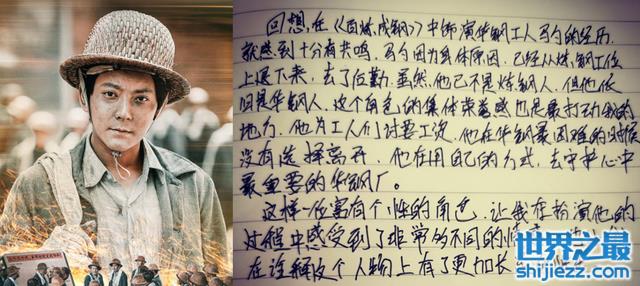 回想在《百炼成钢》中饰演华钢工人马勺的经历，
就感到十分有共鸣，马勺因为身体原因，已经从炼钢工位
上退下来，去了后勤，虽然他已不是炼钢人，但他依
旧是华钢人，这个角色的集体荣誉感也是最打动我的
地方，他为工人们讨要工资，他在华钢最困难的时候
没有选择离开，他在用自己的方式，去守护心中
最重要的华钢厂。
这样一位富有个性的角色，让我在扮演他的
过程中感受到了非常多不同的情
在诠释这个人物上有了更加长
世界之最
shijiezz.com